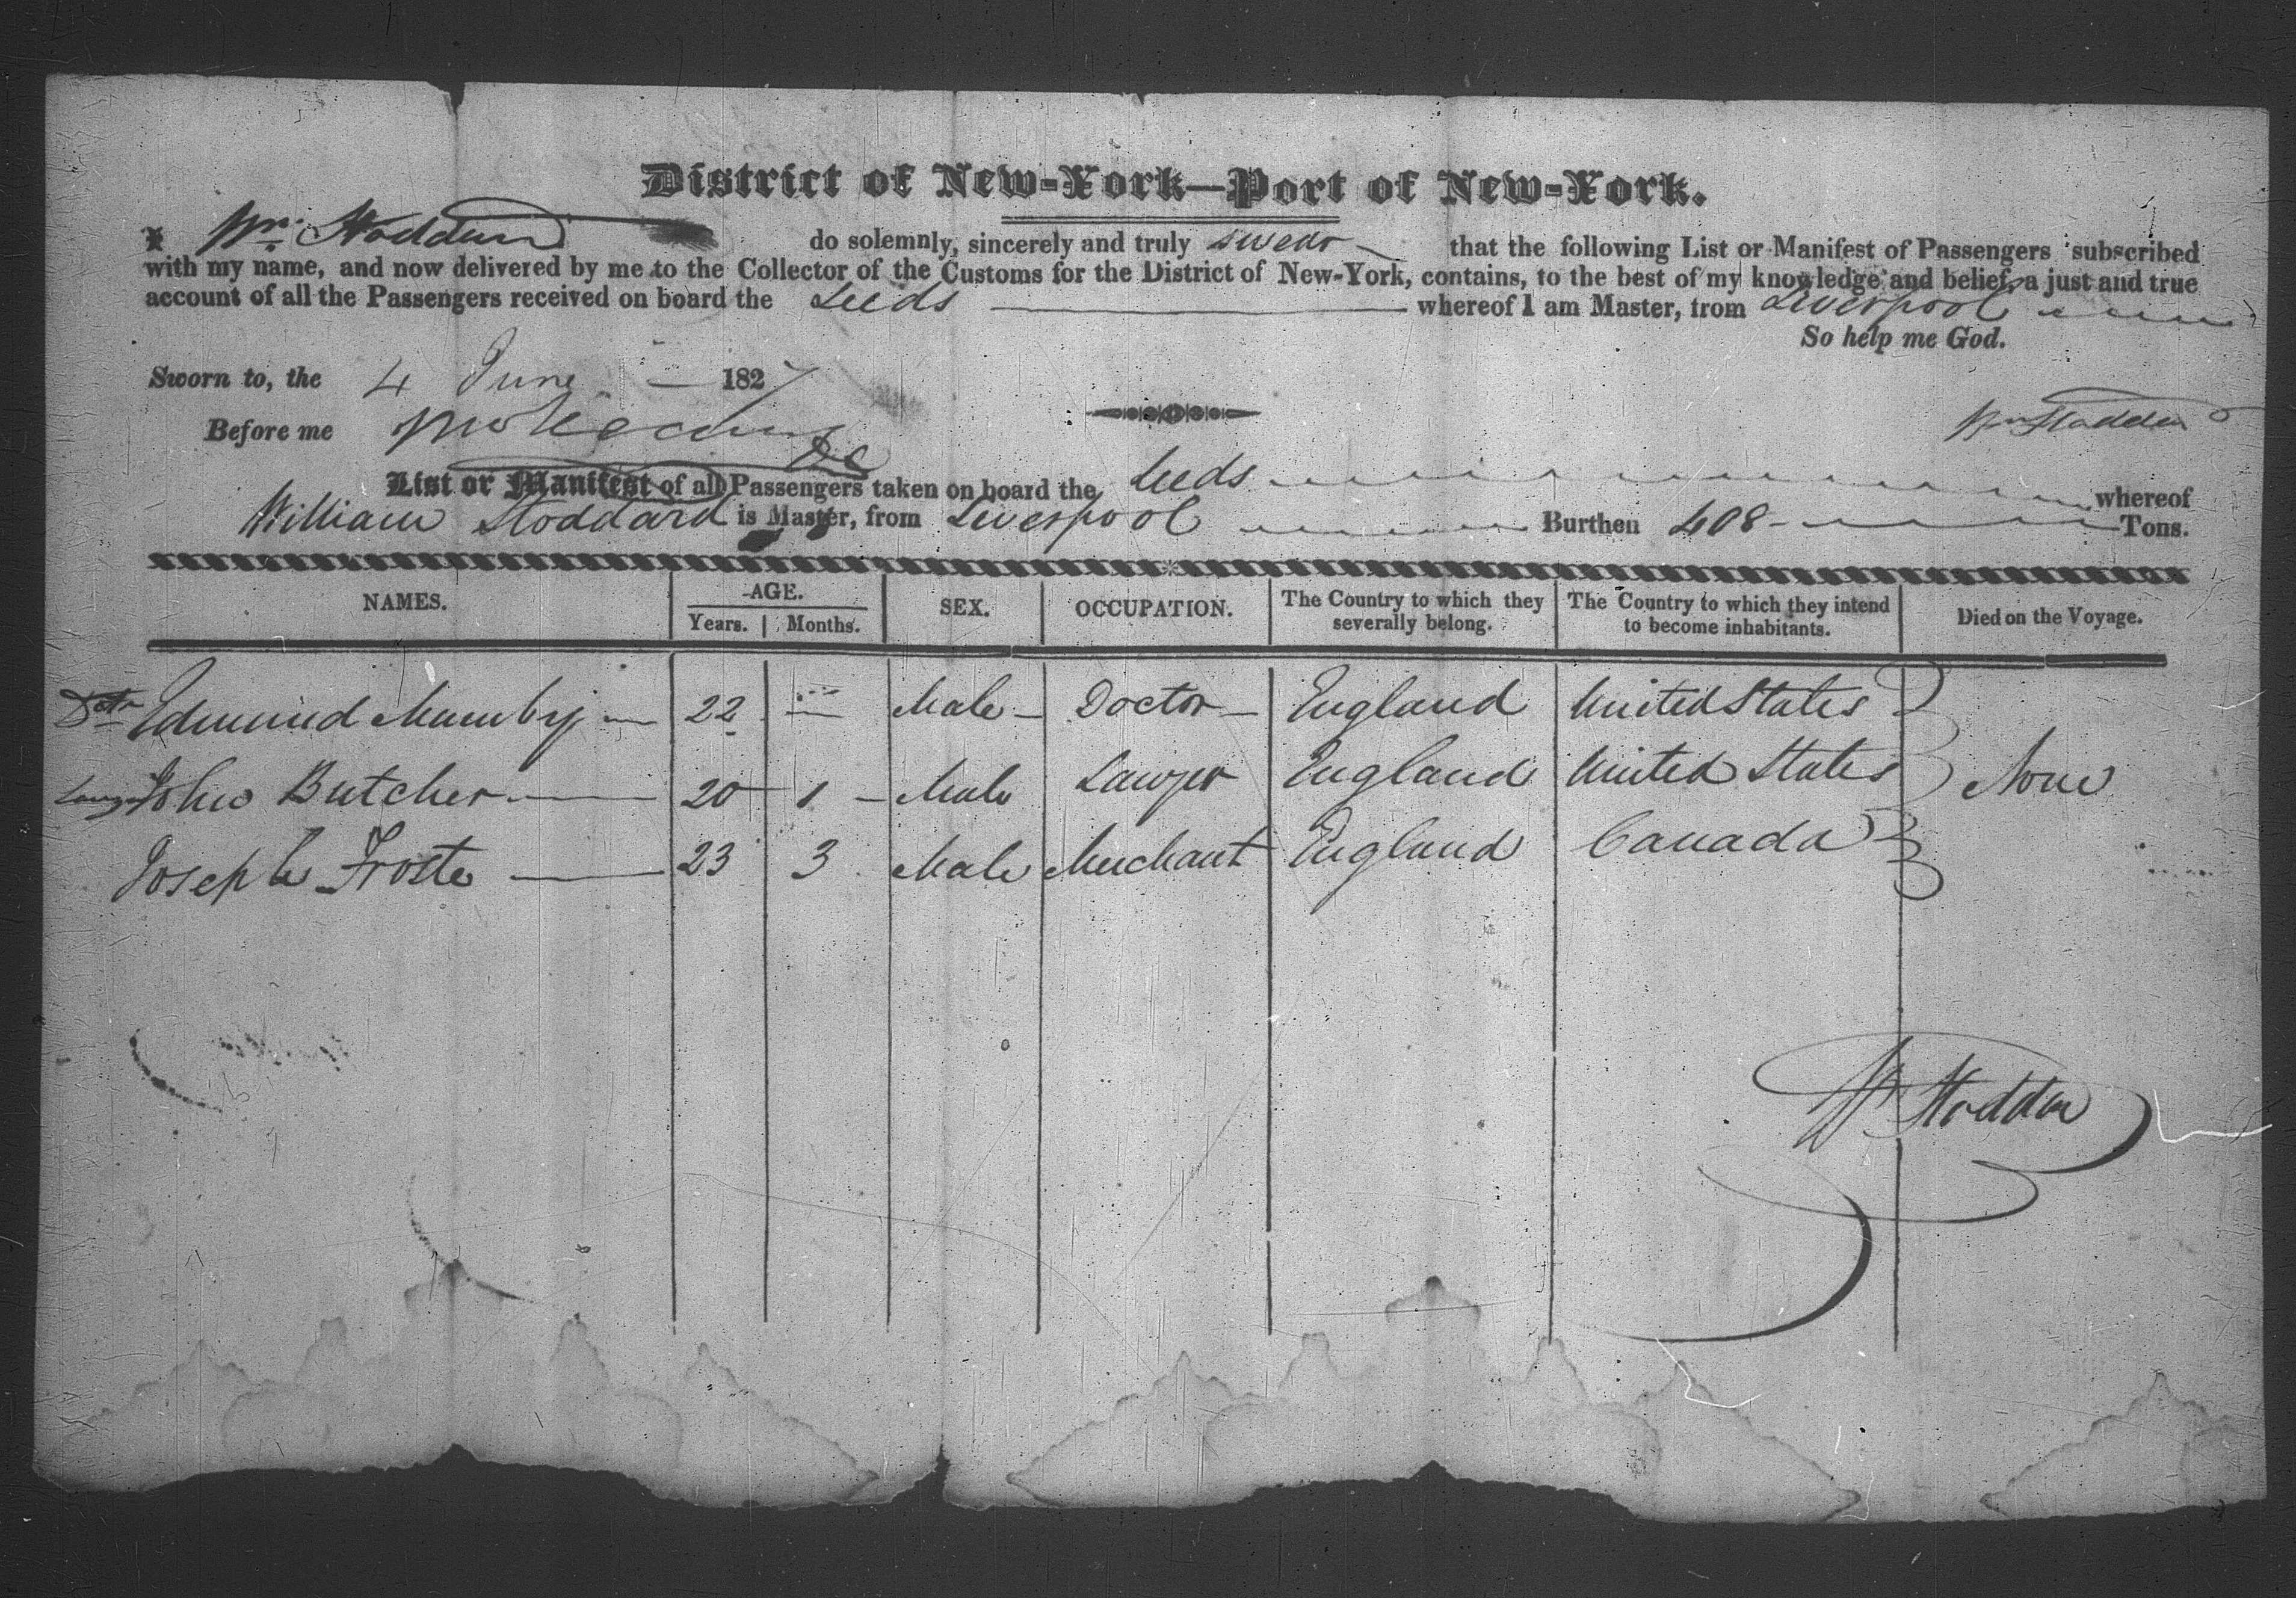 District of New-York—Port of New-York.
I Wm. Stoddard do solemnly, sincerely and truly swear that the following List or Manifest of Passengers subscribed
with my name, and now delivered by me to the Collector of the Customs for the District of New-York, contains, to the best of my knowledge and belief, a just and true
account of all the Passengers received on board the Leeds whereof I am Master, from Liverpool
So help me God.
Sworn to, the 4 June 1827
Before me
Wm Stoddard
List or Manifest of all Passengers taken on board the Leeds whereof
William Stoddard is Master, from Liverpool Burthen 408 Tons.
NAMES. AGE. SEX. OCCUPATION. The Country to which they severally belong. The Country to which they intend to become inhabitants. Died on the Voyage.
Years. Months.
Edmund Mumby 22 Male Doctor England United States
John Butcher 20 1 Male Lawyer England United States None
Joseph Froste 23 3 Male Merchant England Canada
Wm Stoddard